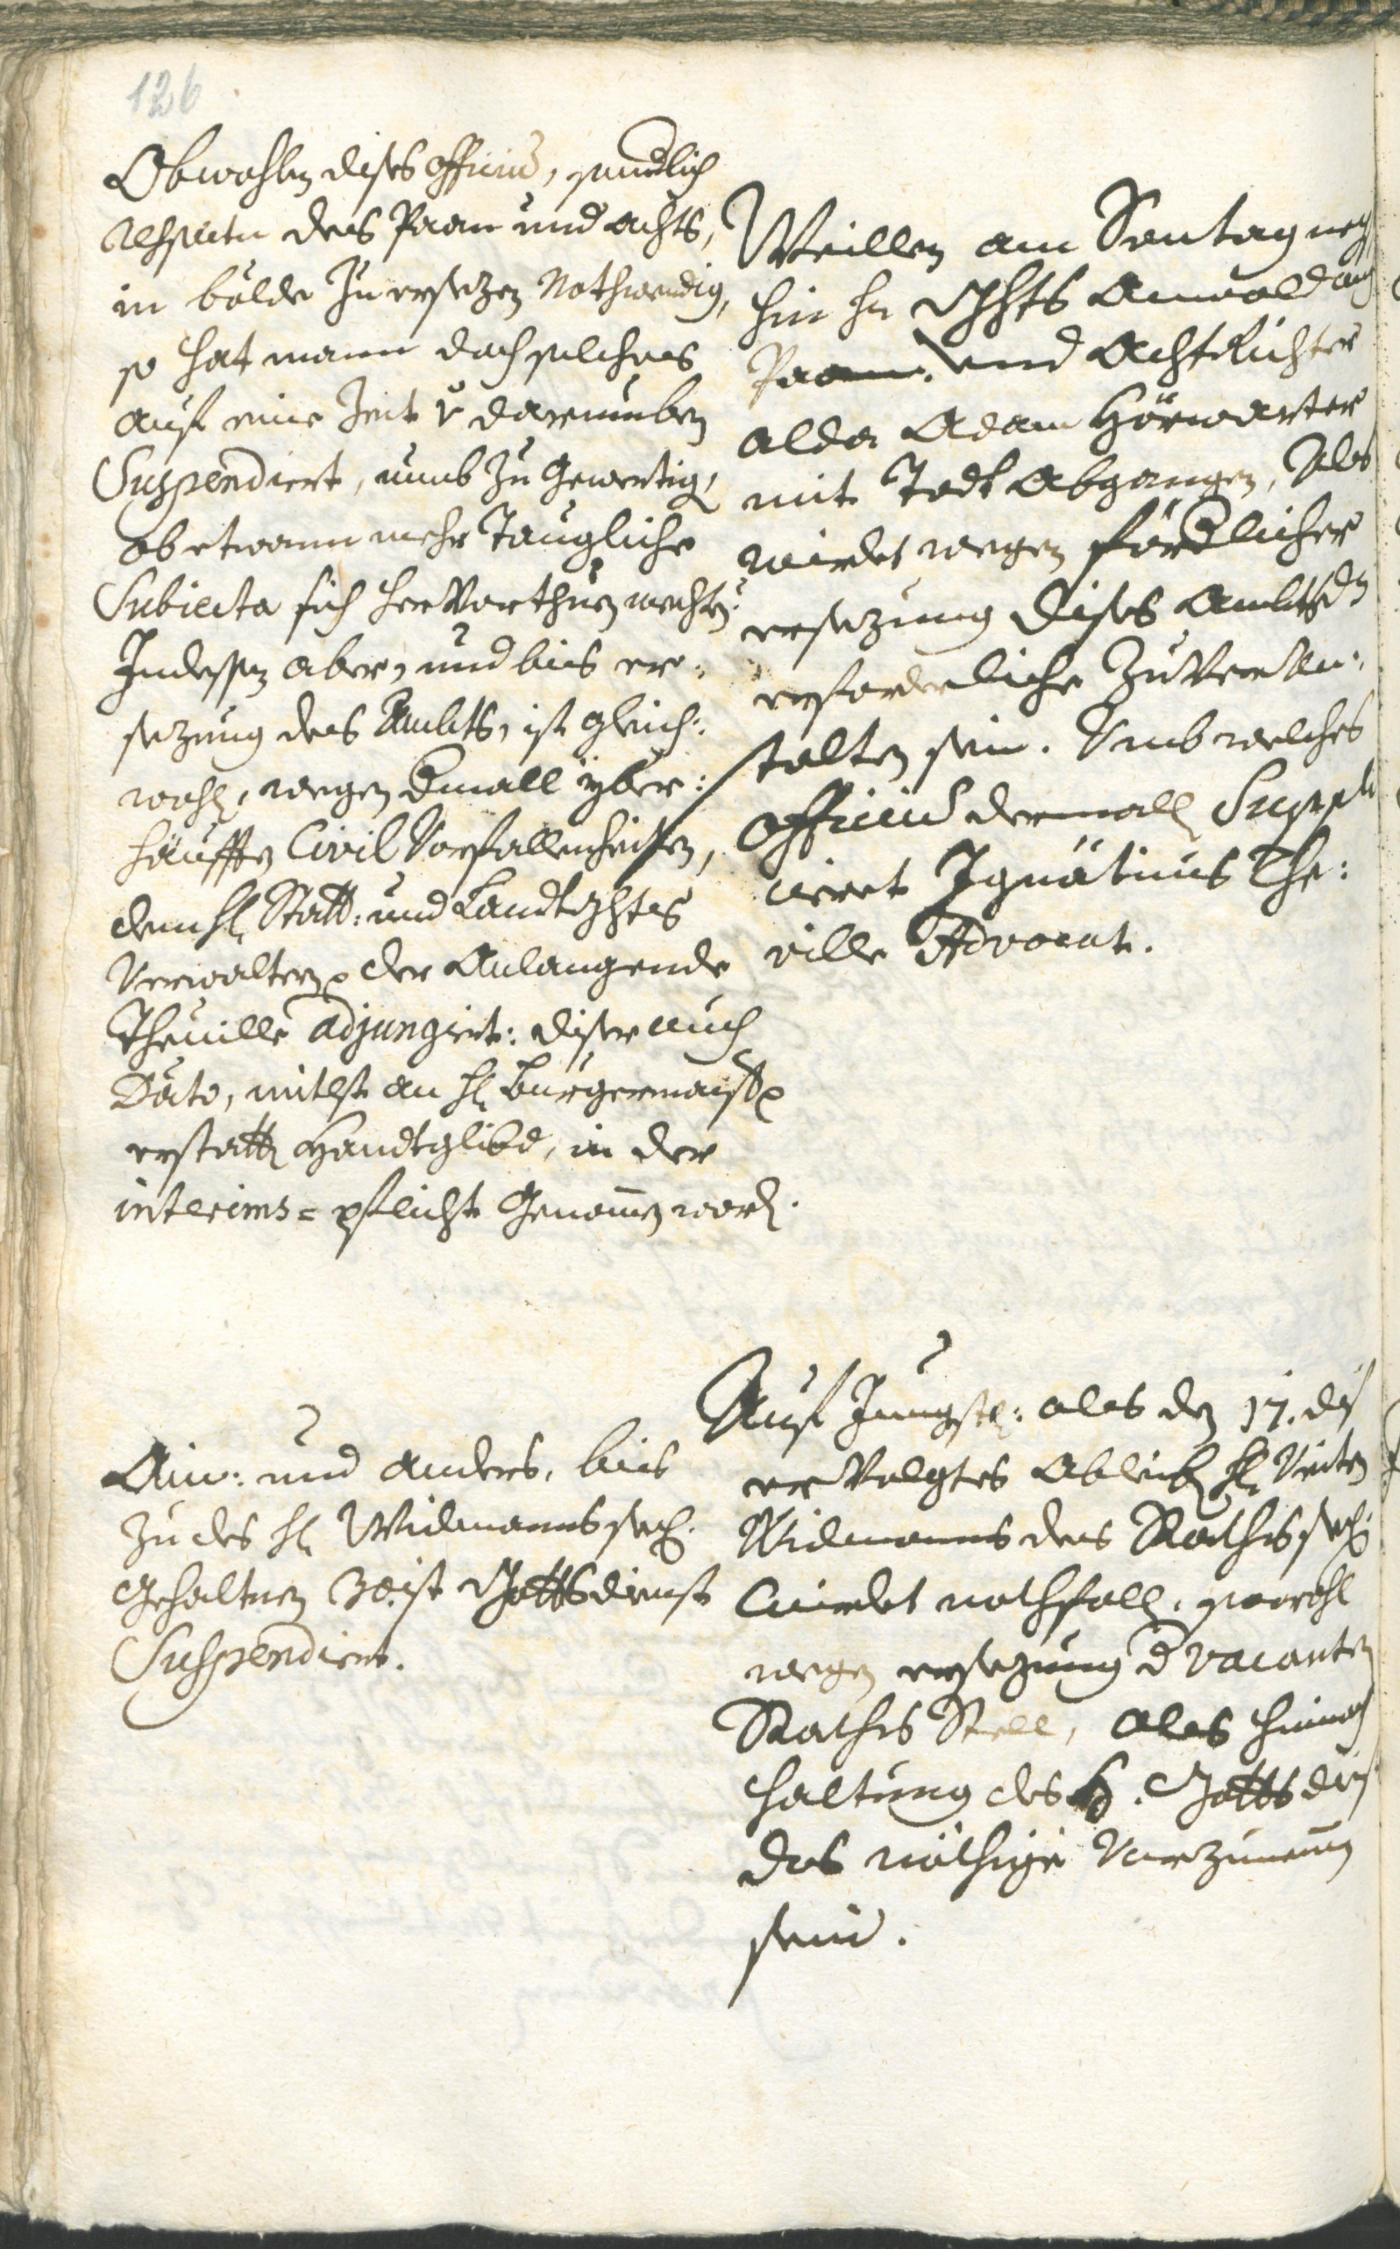 126
Obwohlen dises officium, sendlich
respectu des Paan und achts,
in bälde zu ersezen Nothwendig,
so hat mann doch solches
auf eine Zeit darumben
Suspendiert, umb zu Gewertig,
ob etwann mehr Taugliche
Subiecta sich hervorthuen mechten?
Indessen aber, und bis er:
sezung des Ambts, ist gleich:
wohl, wegen dmall yber:
häuffte Civil Vorfallenheiten,
dem hl Statt: und Landtrichters
Verwaltern der Anlangende
Theuille adjungirt: diser auch
Dato, mitlst an hl Burgermaister
erstatt Handtglibd, in der
interims= pflicht Genomen word.
Weillen am Sontag
hin hr Grhts Anwald auch
Paan: und Acht Richter
alda Adam Hörwarter
mit Todt Abgangen, Als
wirdet wegen fördlicher
ersezung dises Ambts ds
erforderliche zuveran:
stalten sein. Umb welches
officium dermall Suppli
cieret Ignätius The:
ville Advocat.
Ain: und anders, bis
zu des hl Widmanns seel.
Gehaltnen 30.ist Gottsdienst
Suspendirt.
Auf Jungstl: als den 17. dis
ervolgtes Ableib hl Veiten
Widmanns des Raths seel.
wirdet nothfall, sowohl
wegen ersezung d vacanten
Raths Stell, als
haltung des H. Gottsdinst
das nöthige Vorzunemen
sein.